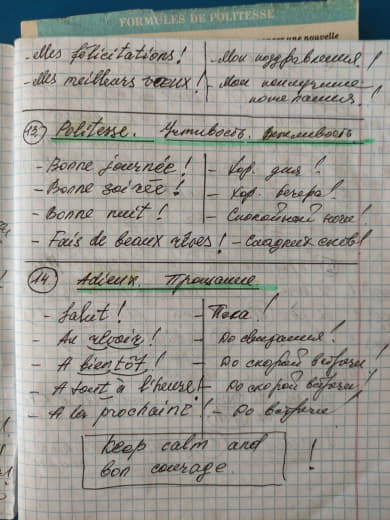 FORMULES DE POLITESSE
une nouvelle
- Mes félicitations! - Мои поздравления!
- Mes meilleurs vœux! - Мои наилучшие
пожелания!
13. Politesse. Учтивость. Вежливость
- Bonne journée! - Хор. дня!
- Bonne soirée! - Хор. вечера!
- Bonne nuit! - Спокойной ночи!
- Fais de beaux rêves! - Сладких снов!
14. Adieux. Прощание
- Salut! - Пока!
- Au revoir! - До свидания!
- A bientôt! - До скорой встречи!
- A tout à l'heure! - До скорой встречи!
- A la prochaine! - До встречи!
Keep calm and
bon courage. !